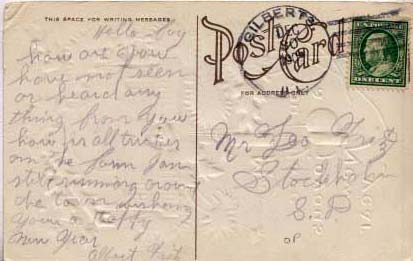 THIS SPACE FOR WRITING MESSAGES
Hello Boy
how are you
have not seen
or heard any
thing from you
how is all turies
on the farm I am
still running around
the town wishing
you a Happy
New Year
Albert
Post Card
FOR ADDRESS ONLY
GILBERTS
ONE CENT
Mr Leo
Stockholm
S. D.